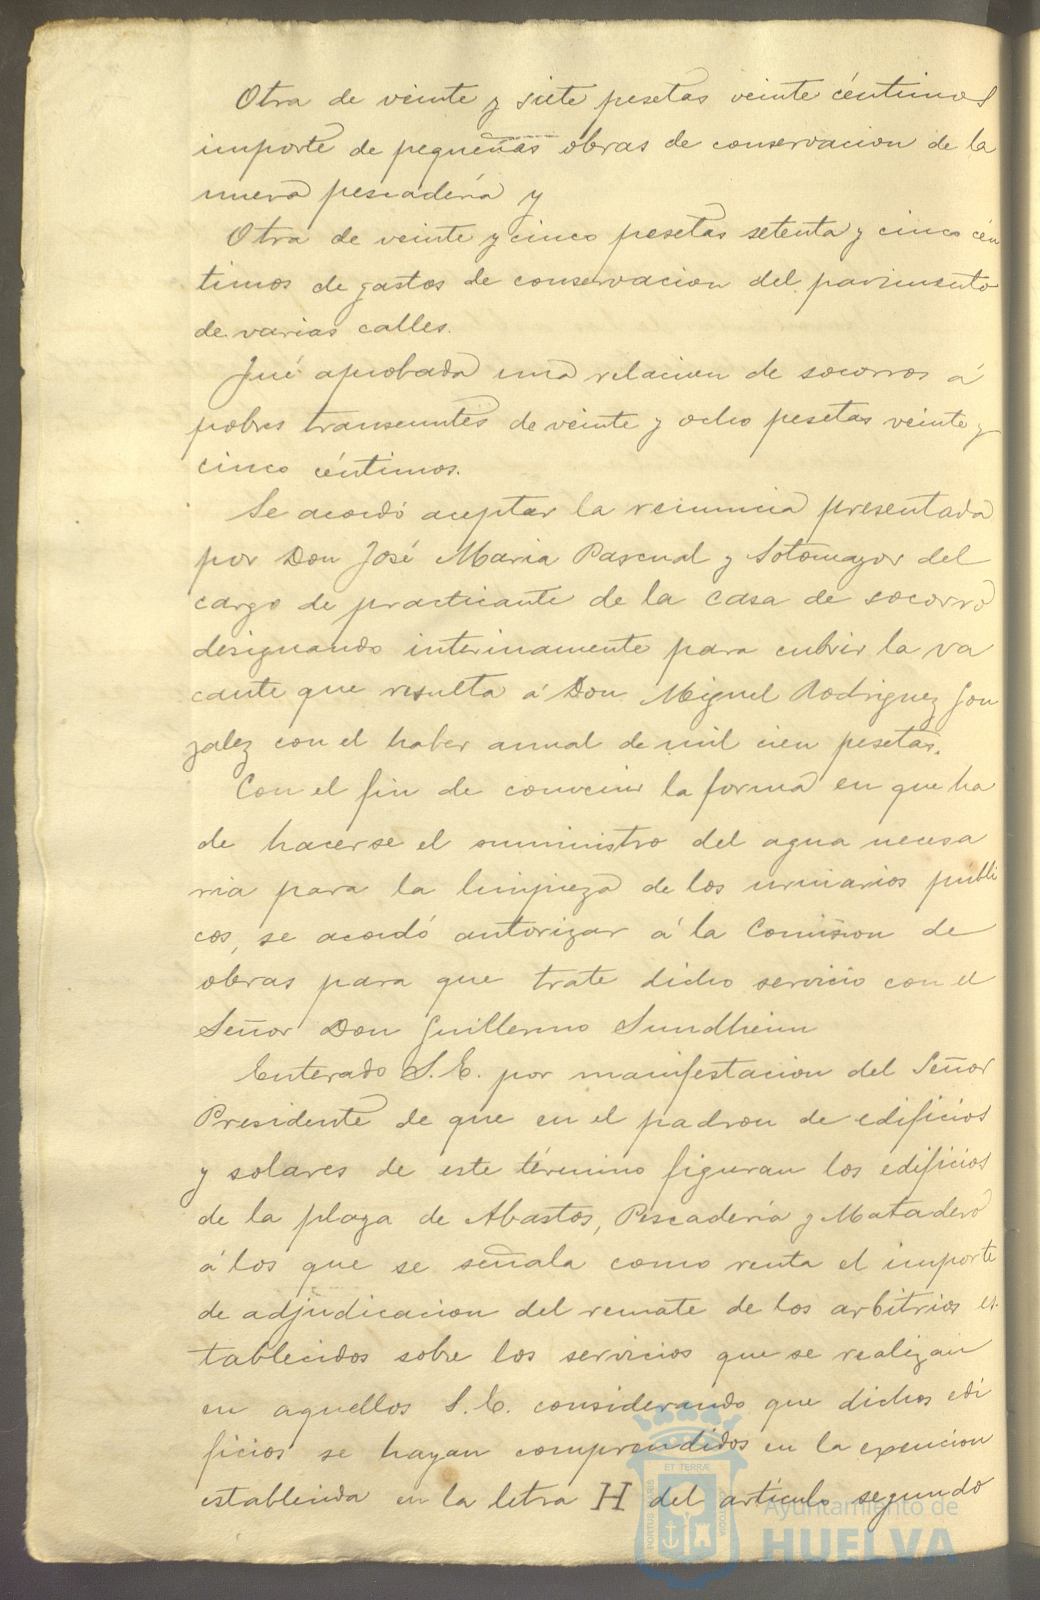 Otra de veinte y siete pesetas veinte céntimos
importe de pequeñas obras de conservacion de la
nueva pescadería y
Otra de veinte y cinco pesetas setenta y cinco cén
timos de gastos de conservacion del pavimento
de varias calles.
Fué aprobada una relacion de socorros á
pobres transeuntes de veinte y ocho pesetas veinte y
cinco céntimos.
Se acordó aceptar la renuncia presentada
por Don José Maria Pascual y Sotomayor del
cargo de practicante de la Casa de socorro
designando interinamente para cubrir la va
cante que resulta á Don Miguel Rodriguez Gon
zalez con el haber anual de mil cien pesetas.
Con el fin de convenir la forma en que ha
de hacerse el suministro del agua necesa
ria para la limpieza de los urinarios publi
cos, se acordó autorizar á la Comision de
obras para que trate dicho servicio con el
Señor Don Guillermo Sundheim
Enterado S.E. por manifestacion del Señor
Presidente de que en el padron de edificios
y solares de este término figuran los edificios
de la plaza de Abastos, Pescadería y Matadero
á los que se señala como renta el importe
de adjudicacion del remate de los arbitrios es
tablecidos sobre los servicios que se realizan
en aquellos S.E. considerando que dichos edi
ficios se hayan comprendidos en la exencion
establecida en la letra H del artículo segundo
ET TERRÆ
PORTUS MARIS
CUSTODIA
Ayuntamiento de
HUELVA